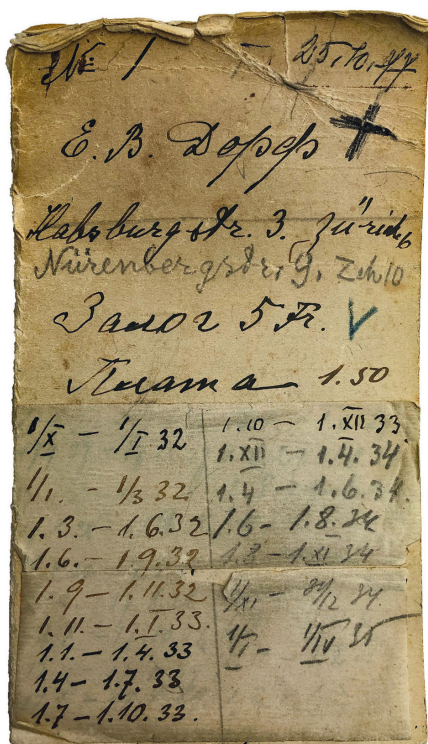 № 1 — 25.10.
Е. В. Дорфф
Habsburgstr. 3. Zürich 6
Nürenbergstr. 9, Zch 10
Залог 5 Fr. V
Плата 1.50
1/X — 1/I 32
1/1. — 1/3 32
1. 3. — 1.6.32
1.6. — 1.9.32
1.9 — 1.11.32
1.11. — 1.I.33.
1.1. — 1.4.33
1.4 — 1.7.33
1.7 — 1.10.33.
1.10 — 1.XII 33
1.XII — 1.4.34
1.4 — 1.6.34.
1.6 — 1.8.34
1.8 — 1.XI 34
1/XI — 31/12 34.
1/I — 1/IV 35